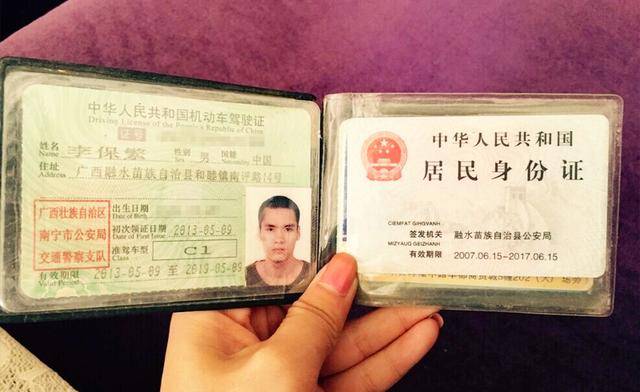 中华人民共和国机动车驾驶证
Driving License of the People's Republic of China
证号
姓名 李保宏 性别 男 国籍 中国
Name Sex Nationality
住址 广西融水苗族自治县和睦镇南评路14号
Address
出生日期
Date of Birth
初次领证日期 2013-05-09
Date of First Issue
准驾车型 C1
Class
广西壮族自治区
南宁市公安局
交通警察支队
有效期限 2013-05-09 至 2019-05-09
Valid Period
中华人民共和国
居民身份证
CIEMFAT GIHGVANH
签发机关 融水苗族自治县公安局
MIZYAUG GEIZHANH
有效期限 2007.06.15-2017.06.15